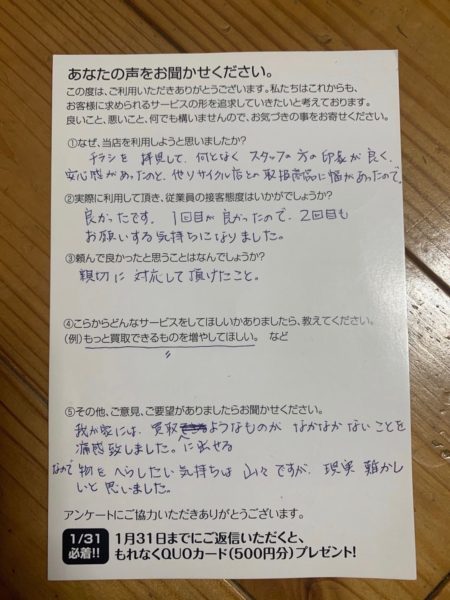 あなたの声をお聞かせください。
この度は、ご利用いただきありがとうございます。私たちはこれからも、
お客様に求められるサービスの形を追求していきたいと考えております。
良いこと、悪いこと、何でも構いませんので、お気づきの事をお寄せください。
①なぜ、当店を利用しようと思いましたか?
チラシを拝見して、何となくスタッフの方の印象が良く、
安心感があったのと、他リサイクル店との取扱商品に幅があったので。
②実際に利用して頂き、従業員の接客態度はいかがでしょうか?
良かったです。1回目が良かったので、2回目も
お願いする気持ちになりました。
③頼んで良かったと思うことはなんでしょうか?
親切に対応して頂けたこと。
④こらからどんなサービスをしてほしいかありましたら、教えてください。
(例)もっと買取できるものを増やしてほしい。 など
〃
⑤その他、ご意見、ご要望がありましたらお聞かせください。
我が家には、買取ようなものがなかなかないことを
痛感致しました。 に出せる
なので物をへらしたい気持ちは山々ですが、現実難かし
いと思いました。
アンケートにご協力いただきありがとうございます。
1/31
必着!!
1月31日までにご返信いただくと、
もれなくQUOカード(500円分)プレゼント!